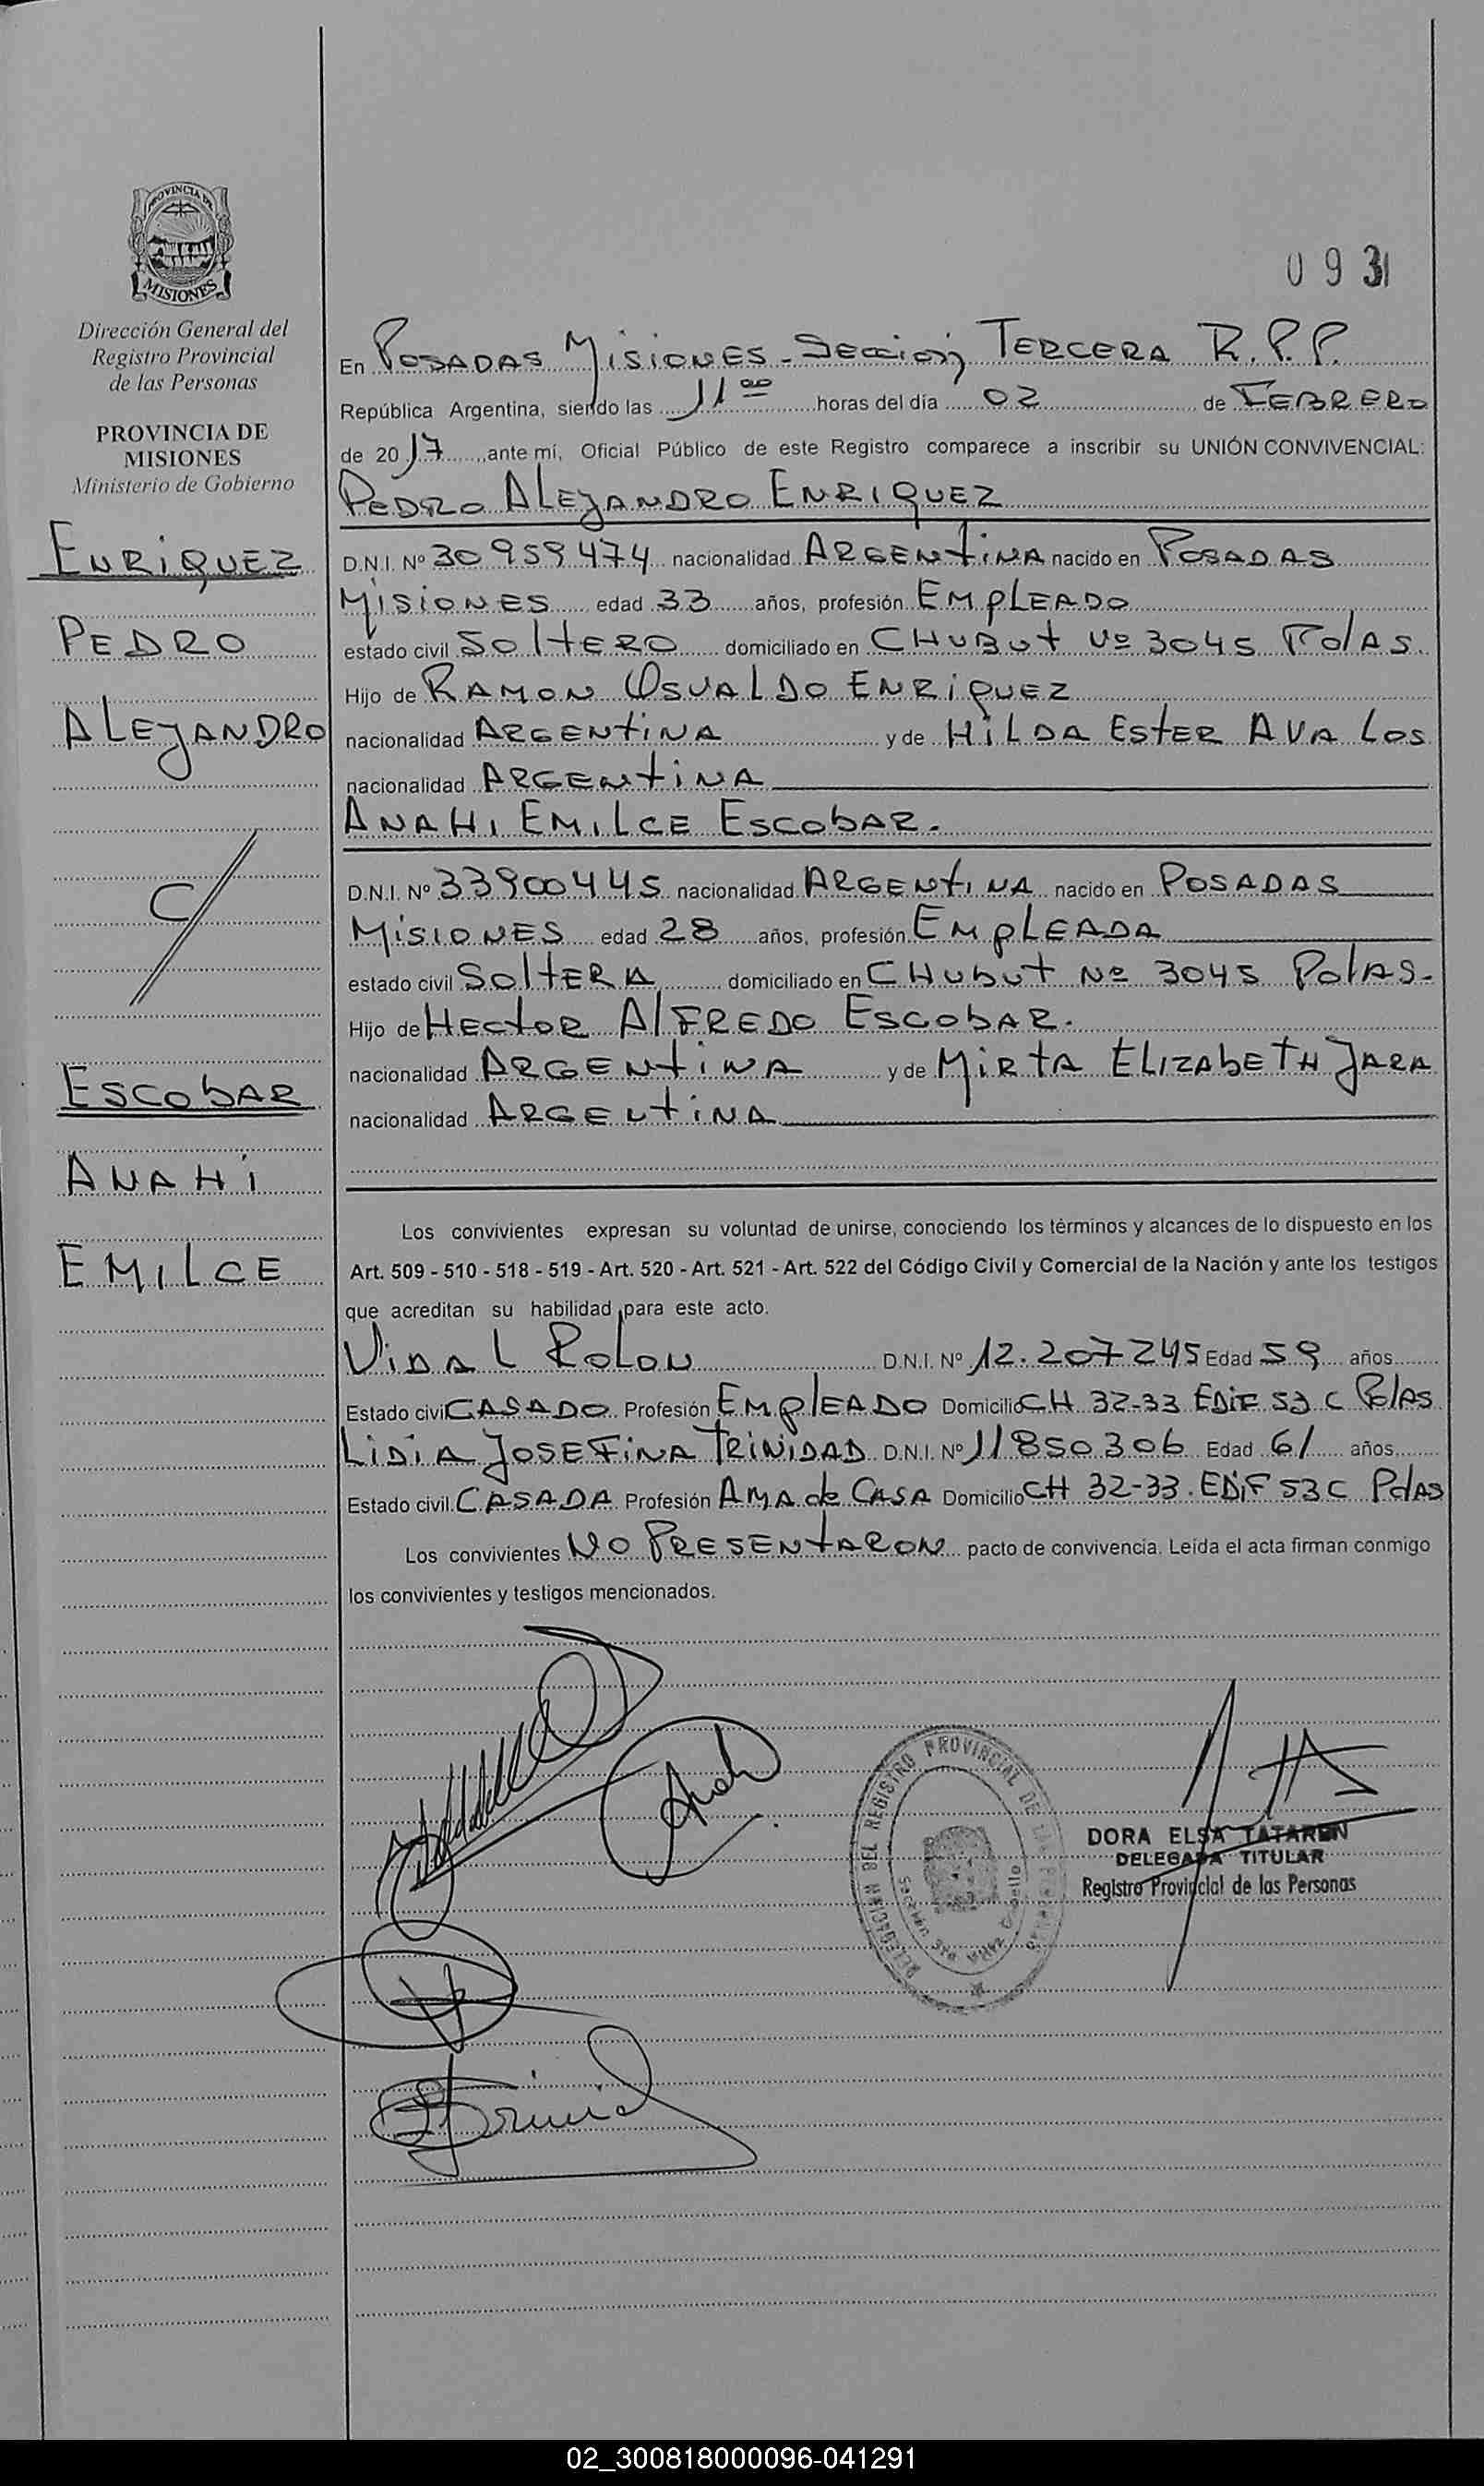 PROVINCIA DE
MISIONES
Dirección General del
Registro Provincial
de las Personas
PROVINCIA DE
MISIONES
Ministerio de Gobierno
ENRIQUEZ
PEDRO
ALEJANDRO
C/
ESCOBAR
ANAHI
EMILCE
093
En POSADAS MISIONES - SECCION TERCERA R.P.P.
República Argentina, siendo las 11 00 horas del día 02 de FEBRERO
de 2017 ante mí, Oficial Público de este Registro comparece a inscribir su UNIÓN CONVIVENCIAL:
PEDRO ALEJANDRO ENRIQUEZ
D.N.I. Nº 30959474 nacionalidad ARGENTINA nacido en POSADAS
MISIONES edad 33 años, profesión EMPLEADO
estado civil SOLTERO domiciliado en CHUBUT Nº 3045 PdAS.
Hijo de RAMON OSVALDO ENRIQUEZ
nacionalidad ARGENTINA y de HILDA ESTER AVALOS
nacionalidad ARGENTINA
ANAHI EMILCE ESCOBAR.
D.N.I. Nº 33900445 nacionalidad ARGENTINA nacido en POSADAS
MISIONES edad 28 años, profesión EMPLEADA
estado civil SOLTERA domiciliado en CHUBUT Nº 3045 PdAS.
Hijo de HECTOR ALFREDO ESCOBAR.
nacionalidad ARGENTINA y de MIRTA ELIZABETH JARA
nacionalidad ARGENTINA
Los convivientes expresan su voluntad de unirse, conociendo los términos y alcances de lo dispuesto en los
Art. 509 - 510 - 518 - 519 - Art. 520 - Art. 521 - Art. 522 del Código Civil y Comercial de la Nación y ante los testigos
que acreditan su habilidad para este acto.
VIDAL ROLON D.N.I. Nº 12.207245 Edad 59 años
Estado civil CASADO Profesión EMPLEADO Domicilio CH 32-33 EDIF 53 C PdAS
LIDIA JOSEFINA TRINIDAD D.N.I. Nº 11850306 Edad 61 años
Estado civil CASADA Profesión AMA de CASA Domicilio CH 32-33 EDIF 53 C PdAS
Los convivientes NO PRESENTARON pacto de convivencia. Leída el acta firman conmigo
los convivientes y testigos mencionados.
DELEGACION DEL REGISTRO PROVINCIAL DE LAS PERSONAS
DORA ELSA TATAREN
DELEGADA TITULAR
Registro Provincial de las Personas
02_300818000096-041291